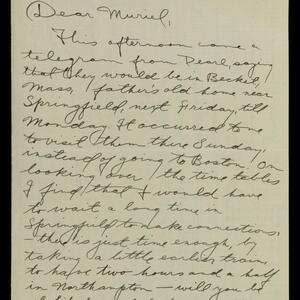 Dear Muriel,
This afternoon came a
telegram from Pearl, saying
that they would be in Becket,
Mass., father's old home near
Springfield, next Friday, till
Monday. It occurred to me
to visit them there Sunday,
instead of going to Boston. On
looking over the time tables
I find that I would have
to wait a long time in
Springfield to make connections,
— there is just time enough, by
taking a little earlier train,
to have two hours and a half
in Northampton — will you be